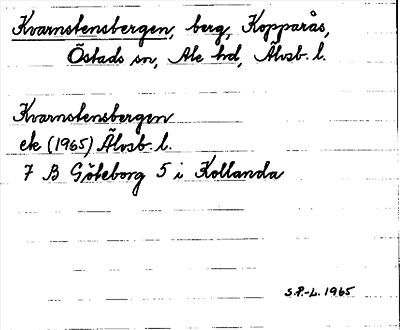 Kvarnstensbergen, berg, Kopparås,
Östads sn, Ale hd, Älvsb. l.
Kvarnstensbergen
ek (1965) Älvsb. l.
7 B Göteborg 5 i Kollanda
S.P.-L. 1965